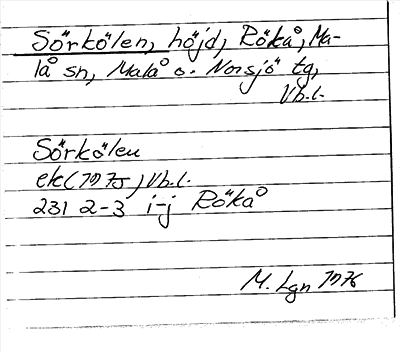 Sörkölen, höjd, Rökå, Ma-
lå sn, Malå o. Norsjö tg,
Vb.l.
Sörkölen
ek (1975) Vb.l.
231 2-3 i-j Rökå
M. Lgn 1976